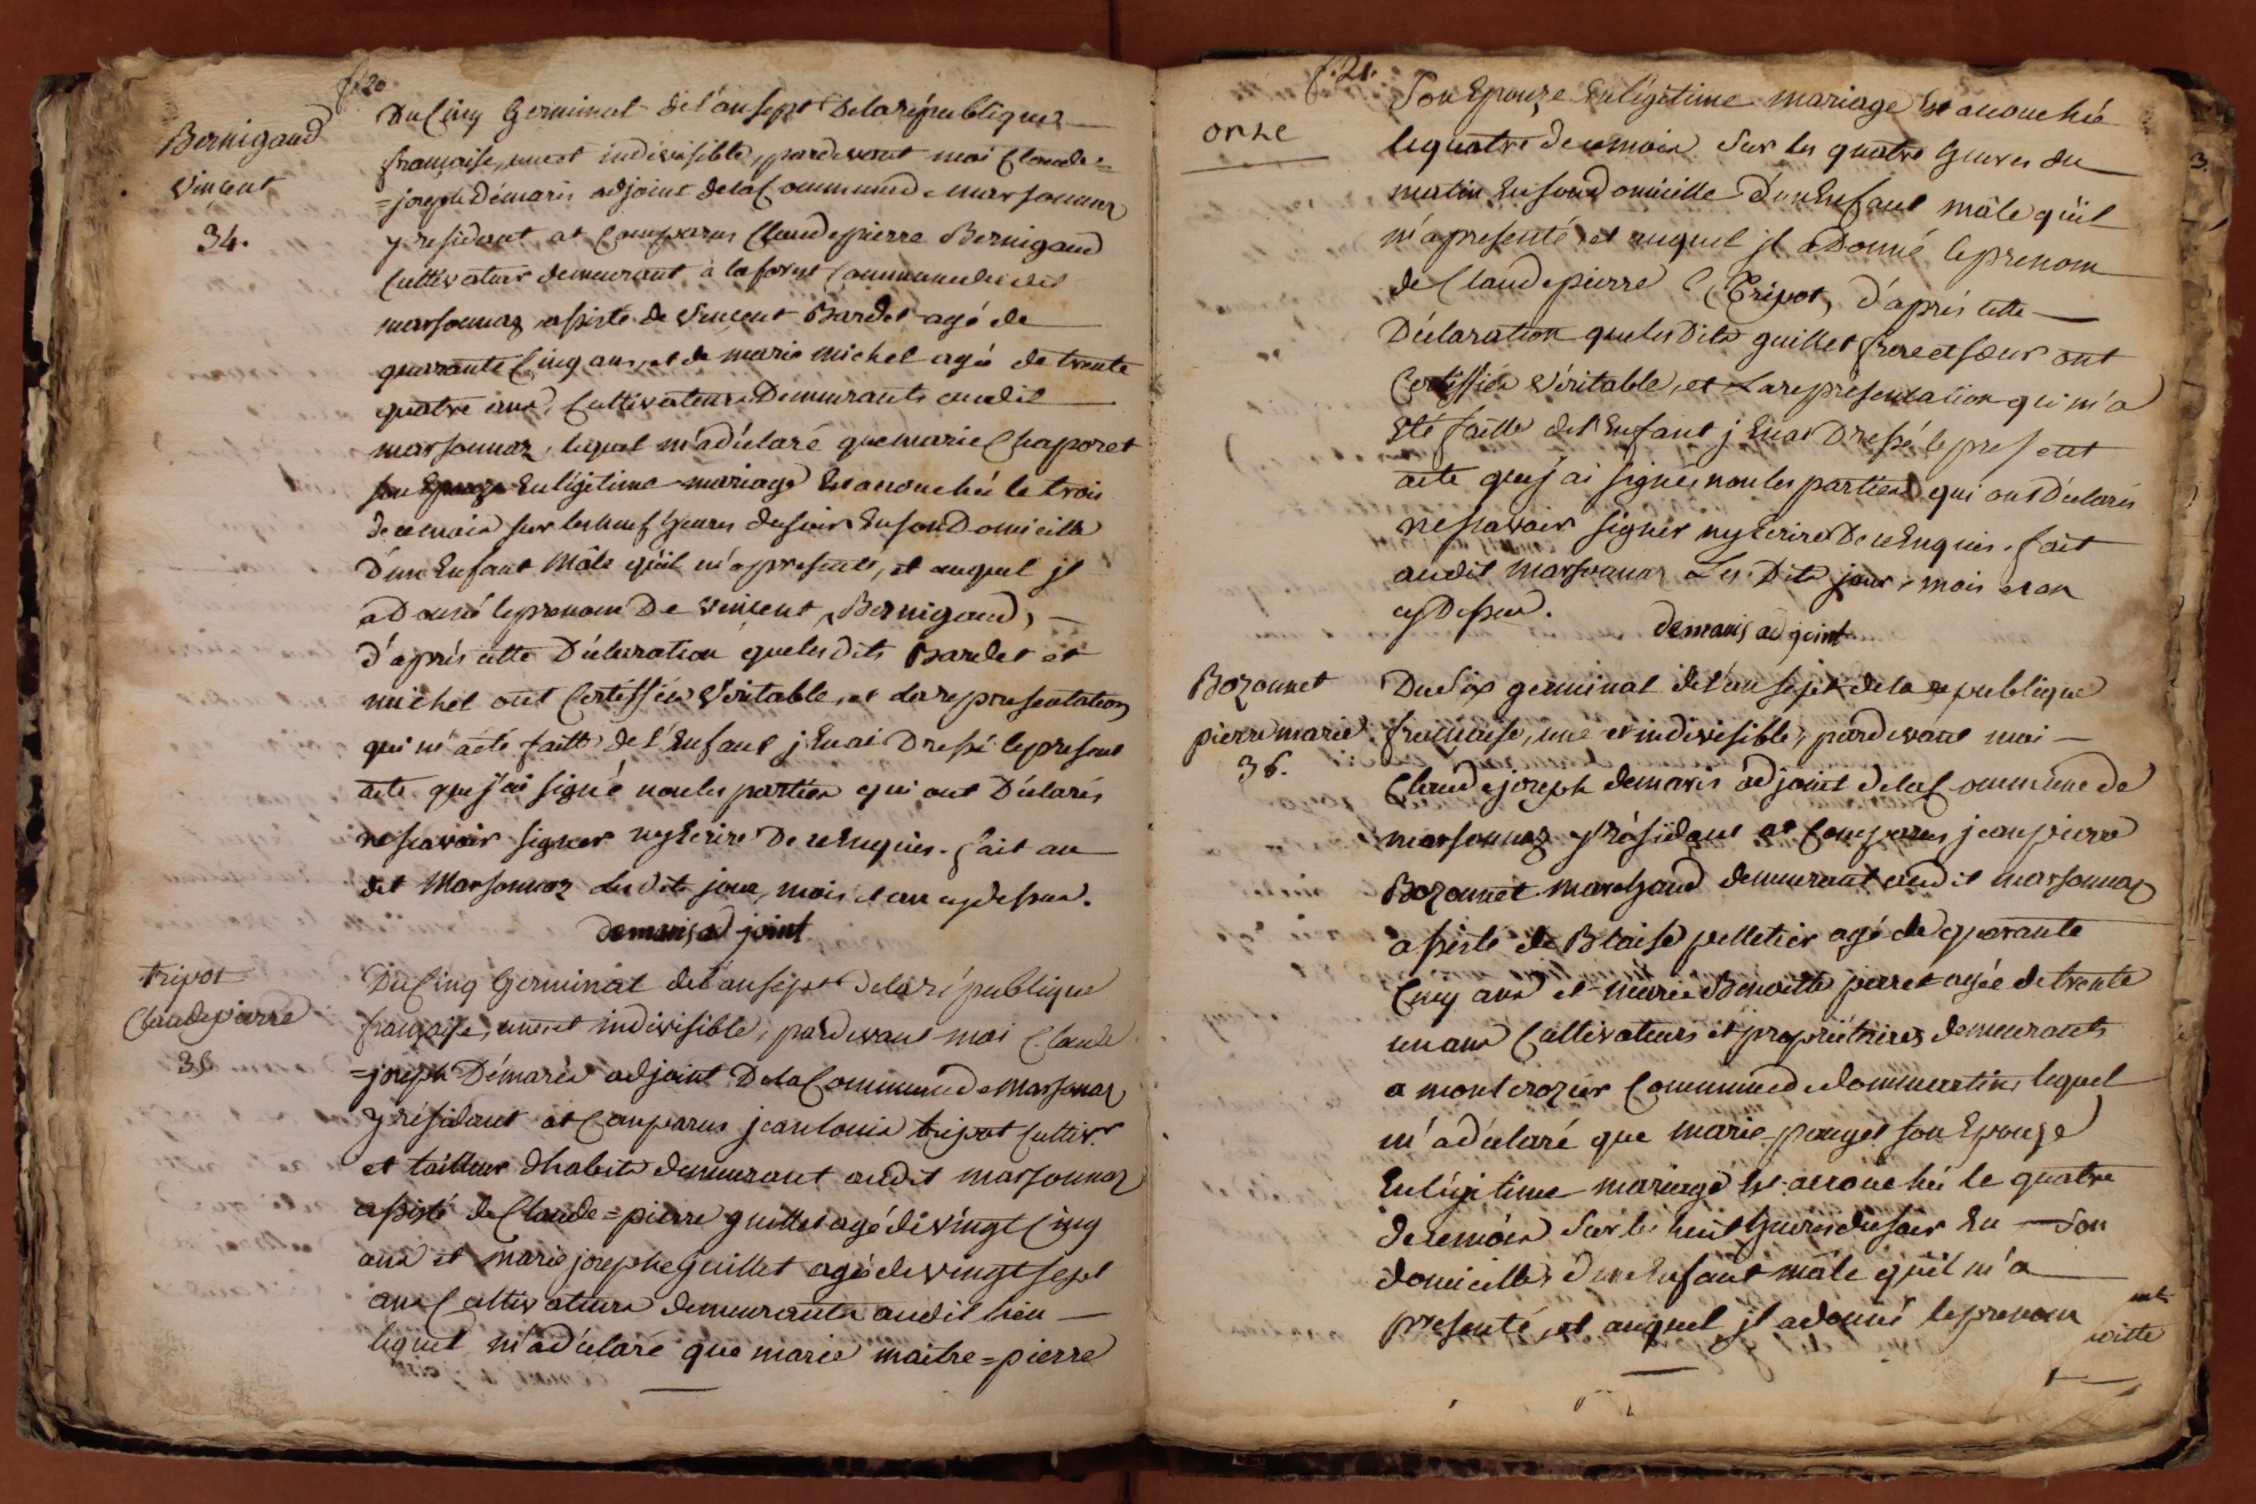 f. 20
Bernigaud
Vincent
34.
Du Cinq Germinal de l'an sept de la république
française, une et indivisible, pardevant moi Claude =
= joseph Démaris adjoint de la Commune de marsonnaz
y residant, at Comparus Claude pierre Bernigaud
Cultivateur demeurant à la forest Commune du dit
marsonnaz assisté de Vincent Bardet agé de
quarante Cinq ans, et de marie michel agée de trente
quatre ans, Cultivateurs Demeurants audit
marsonnaz, lequel m'a déclaré que marie Chaporet
son Epouze En légitime mariage Est accouchée le trois
de ce mois sur les neuf heures du soir En son Domicille
d'un Enfant Mâle qu'il m'a presenté, et auquel jl
a Donné le prenom De Vincent Bernigaud,
d'après cette Déclaration que les dits Bardet et
michel ont Certiffiés Véritable, et la representation
qui m'a été faitte de l'Enfant j'En ai Dressé le present
acte que j'ai signé non les parties qui ont Déclarés
ne scavoir signer ny Ecrire De ce Enquis. fait au
dit Marsonnaz les dits jour, mois et an cy dessus.
demaris adjoint
tripot
Claude pierre
35
Du Cinq Germinal de l'an sept de la république
française, une et indivisible, pardevant moi Claude
= joseph Démaris adjoint De la Commune de Marsonnaz
y résidant at Comparus jean louis tripot Cultivr
et tailleur d'habits demeurant audit marsonnaz
assisté de Claude = pierre guillet agé de vingt Cinq
ans et marie josephe guillet agée de vingt sept
ans Cultivateurs demeurants audit lieu
lequel m'a déclaré que marie maitre = pierre
f. 21.
onze
Son Epouze En légitime mariage Est accouchée
le quatre de ce mois Sur les quatre heures du
matin En son domicille d'un Enfant mâle qu'il
m'a presenté et auquel jl a Donné le prenom
de Claude pierre Tripot, d'après cette
Déclaration que les Dits guillet frere et soeur ont
Certiffiés Véritable, et La representation qui m'a
été faitte de l'Enfant j'En ai Dressé le present
acte que j'ai signé non les parties qui ont Déclarés
ne scavoir signer ny Ecrire De ce Enquis. fait
audit Marsonnaz Les Dits jour, mois et an
cy Dessus.
demaris adjoint
Bozonnet
pierre marie
36.
Du Six germinal de l'an sept de la republique
française, une et indivisible, pardevant moi
Claude joseph demaris adjoint de la Commune de
marsonnaz y résidant at Comparus jean pierre
Bozonnet marchand demeurant audit marsonnaz
assisté de Blaise pelletier agé de quarante
Cinq ans et marie Benoitte perret agée de trente
un ans Cultivateurs et propriétaires demeurants
a montcrozier Commune de dommartin, lequel
m'a déclaré que marie pouget son Epouze
En légitime mariage Est accouchée le quatre
de ce mois Sur les huit heures du soir En son
domicille, d'un Enfant mâle qu'il m'a
presenté, et auquel jl a donné le prenom